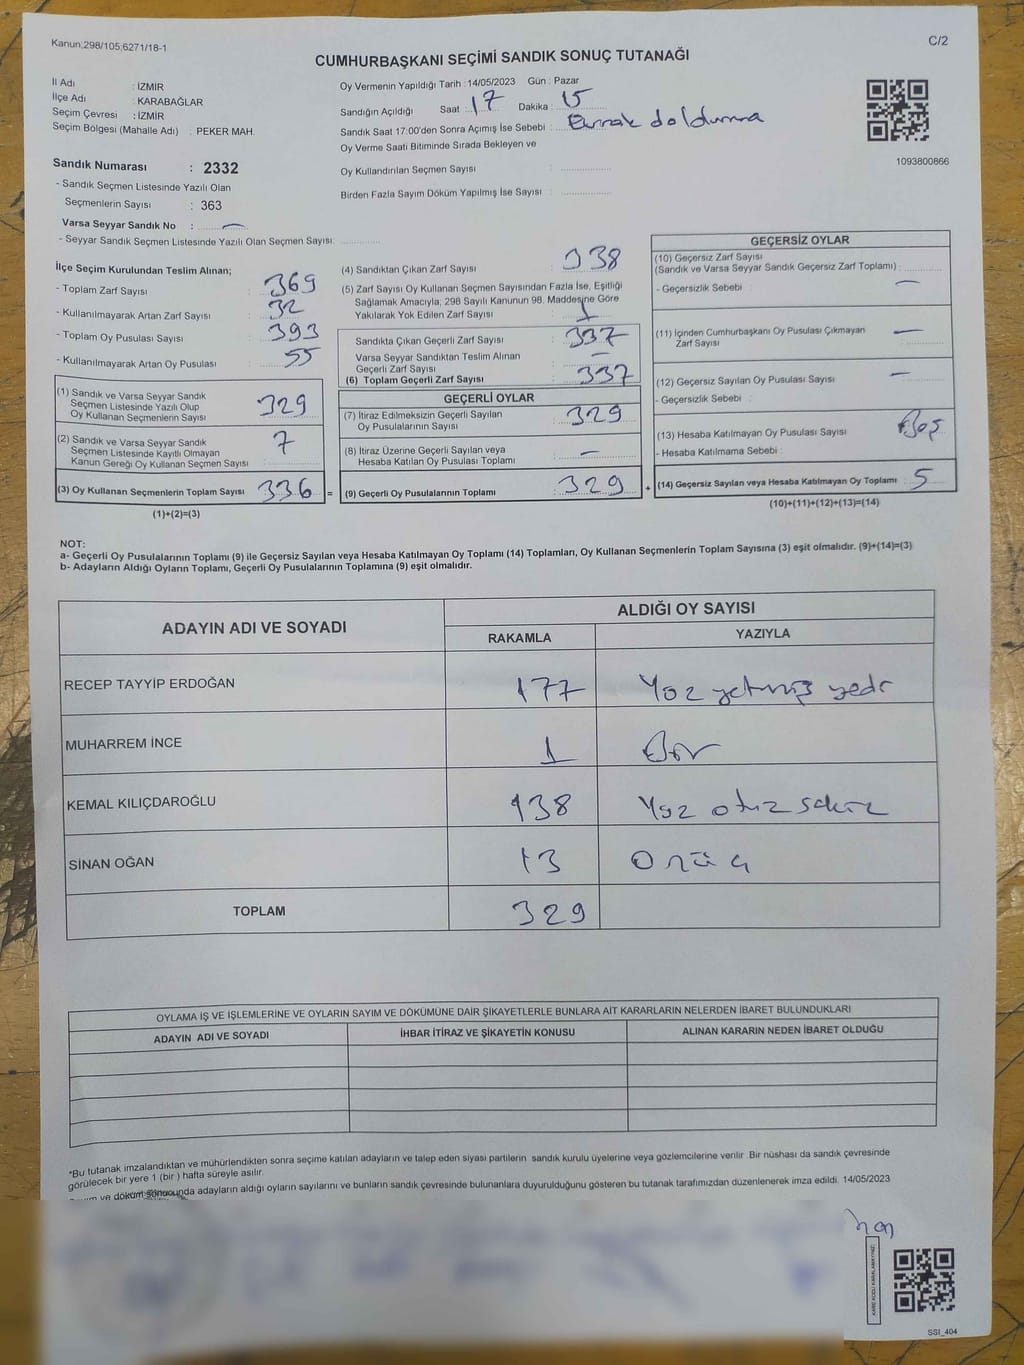 Kanun,298/105,6271/18-1
C/2
CUMHURBAŞKANI SEÇİMİ SANDIK SONUÇ TUTANAĞI
İl Adı : İZMİR
İlçe Adı : KARABAĞLAR
Seçim Çevresi : İZMİR
Seçim Bölgesi (Mahalle Adı) : PEKER MAH.
Oy Vermenin Yapıldığı Tarih :14/05/2023 Gün : Pazar
Sandığın Açıldığı Saat : 17 Dakika : 15
Sandık Saat 17:00'den Sonra Açımış İse Sebebi : Evrak doldurma
Oy Verme Saati Bitiminde Sırada Bekleyen ve
Oy Kullandırılan Seçmen Sayısı :
Birden Fazla Sayım Döküm Yapılmış İse Sayısı :
1093800866
Sandık Numarası : 2332
- Sandık Seçmen Listesinde Yazılı Olan
Seçmenlerin Sayısı : 363
Varsa Seyyar Sandık No : —
- Seyyar Sandık Seçmen Listesinde Yazılı Olan Seçmen Sayısı:
İlçe Seçim Kurulundan Teslim Alınan;
- Toplam Zarf Sayısı : 369
- Kullanılmayarak Artan Zarf Sayısı : 32
- Toplam Oy Pusulası Sayısı : 393
- Kullanılmayarak Artan Oy Pusulası : 55
(1) Sandık ve Varsa Seyyar Sandık
Seçmen Listesinde Yazılı Olup
Oy Kullanan Seçmenlerin Sayısı : 329
(2) Sandık ve Varsa Seyyar Sandık
Seçmen Listesinde Kayıtlı Olmayan
Kanun Gereği Oy Kullanan Seçmen Sayısı : 7
(3) Oy Kullanan Seçmenlerin Toplam Sayısı : 336 =
(1)+(2)=(3)
(4) Sandıktan Çıkan Zarf Sayısı : 338
(5) Zarf Sayısı Oy Kullanan Seçmen Sayısından Fazla İse, Eşitliği
Sağlamak Amacıyla; 298 Sayılı Kanunun 98. Maddesine Göre
Yakılarak Yok Edilen Zarf Sayısı : 1
Sandıkta Çıkan Geçerli Zarf Sayısı : 337
Varsa Seyyar Sandıktan Teslim Alınan
Geçerli Zarf Sayısı : —
(6) Toplam Geçerli Zarf Sayısı : 337
GEÇERLİ OYLAR
(7) İtiraz Edilmeksizin Geçerli Sayılan
Oy Pusulalarının Sayısı : 329
(8) İtiraz Üzerine Geçerli Sayılan veya
Hesaba Katılan Oy Pusulası Toplamı : —
(9) Geçerli Oy Pusulalarının Toplamı : 329 +
GEÇERSİZ OYLAR
(10) Geçersiz Zarf Sayısı
(Sandık ve Varsa Seyyar Sandık Geçersiz Zarf Toplamı) :
- Geçersizlik Sebebi : —
(11) İçinden Cumhurbaşkanı Oy Pusulası Çıkmayan
Zarf Sayısı : —
(12) Geçersiz Sayılan Oy Pusulası Sayısı : —
- Geçersizlik Sebebi :
(13) Hesaba Katılmayan Oy Pusulası Sayısı : Boş
- Hesaba Katılmama Sebebi :
(14) Geçersiz Sayılan veya Hesaba Katılmayan Oy Toplamı : 5
(10)+(11)+(12)+(13)=(14)
NOT:
a- Geçerli Oy Pusulalarının Toplamı (9) ile Geçersiz Sayılan veya Hesaba Katılmayan Oy Toplamı (14) Toplamları, Oy Kullanan Seçmenlerin Toplam Sayısına (3) eşit olmalıdır. (9)+(14)=(3)
b- Adayların Aldığı Oyların Toplamı, Geçerli Oy Pusulalarının Toplamına (9) eşit olmalıdır.
ADAYIN ADI VE SOYADI
ALDIĞI OY SAYISI
RAKAMLA YAZIYLA
RECEP TAYYİP ERDOĞAN 177 Yüz yetmiş yedi
MUHARREM İNCE 1 Bir
KEMAL KILIÇDAROĞLU 138 Yüz otuz sekiz
SİNAN OĞAN 13 Onüç
TOPLAM 329
OYLAMA İŞ VE İŞLEMLERİNE VE OYLARIN SAYIM VE DÖKÜMÜNE DAİR ŞİKAYETLERLE BUNLARA AİT KARARLARIN NELERDEN İBARET BULUNDUKLARI
ADAYIN ADI VE SOYADI İHBAR İTİRAZ VE ŞİKAYETİN KONUSU ALINAN KARARIN NEDEN İBARET OLDUĞU
*Bu tutanak imzalandıktan ve mühürlendikten sonra seçime katılan adayların ve talep eden siyasi partilerin sandık kurulu üyelerine veya gözlemcilerine verilir Bir nüshası da sandık çevresinde
görülecek bir yere 1 (bir ) hafta süreyle asılır.
ve döküm sonucunda adayların aldığı oyların sayılarını ve bunların sandık çevresinde bulunanlara duyurulduğunu gösteren bu tutanak tarafımızdan düzenlenerek imza edildi. 14/05/2023
KARE KODU KARALAMAYINIZ!
SSI_404